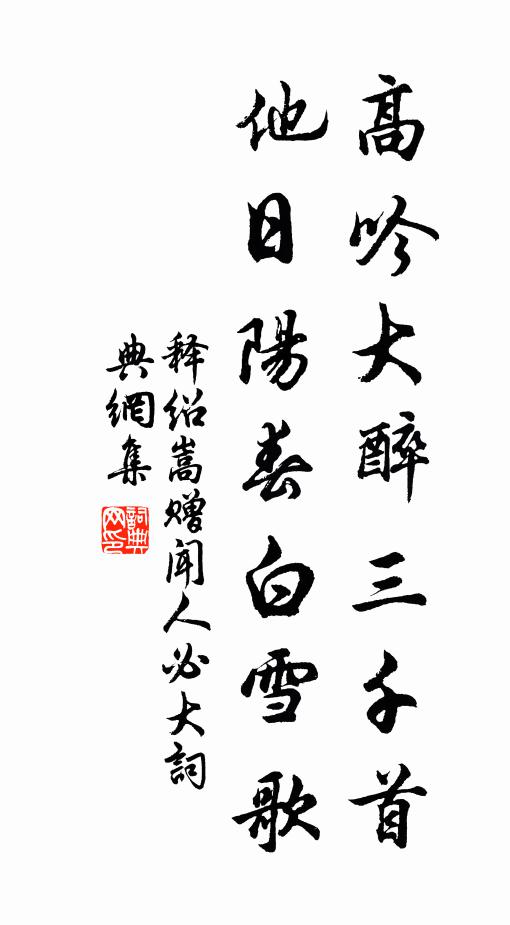 高吟大醉三千首
他日陽春白雪歌
释绍嵩赠闻人必大詞
典網集
詞典网印